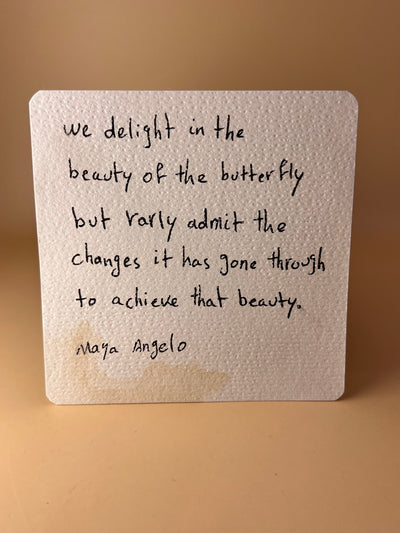 we delight in the
beauty of the butterfly
but rarly admit the
changes it has gone through
to achieve that beauty.
Maya Angelo